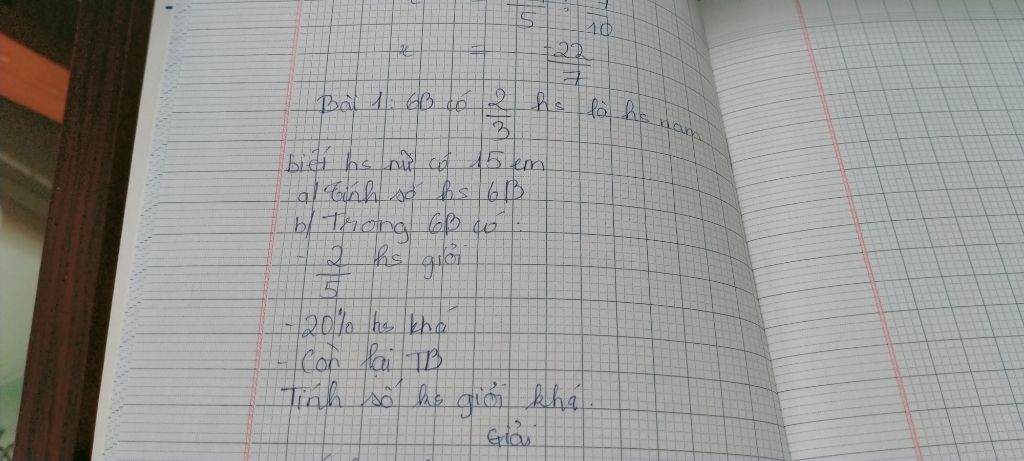 5 : 10
x = -22/7
Bài 1: 6B có 2/3 hs là hs nam
biết hs nữ có 15 em
a/ Tính số hs 6B
b/ Trong 6B có :
- 2/5 hs giỏi
- 20% hs khá
- Còn lại TB
Tính số hs giỏi khá.
Giải